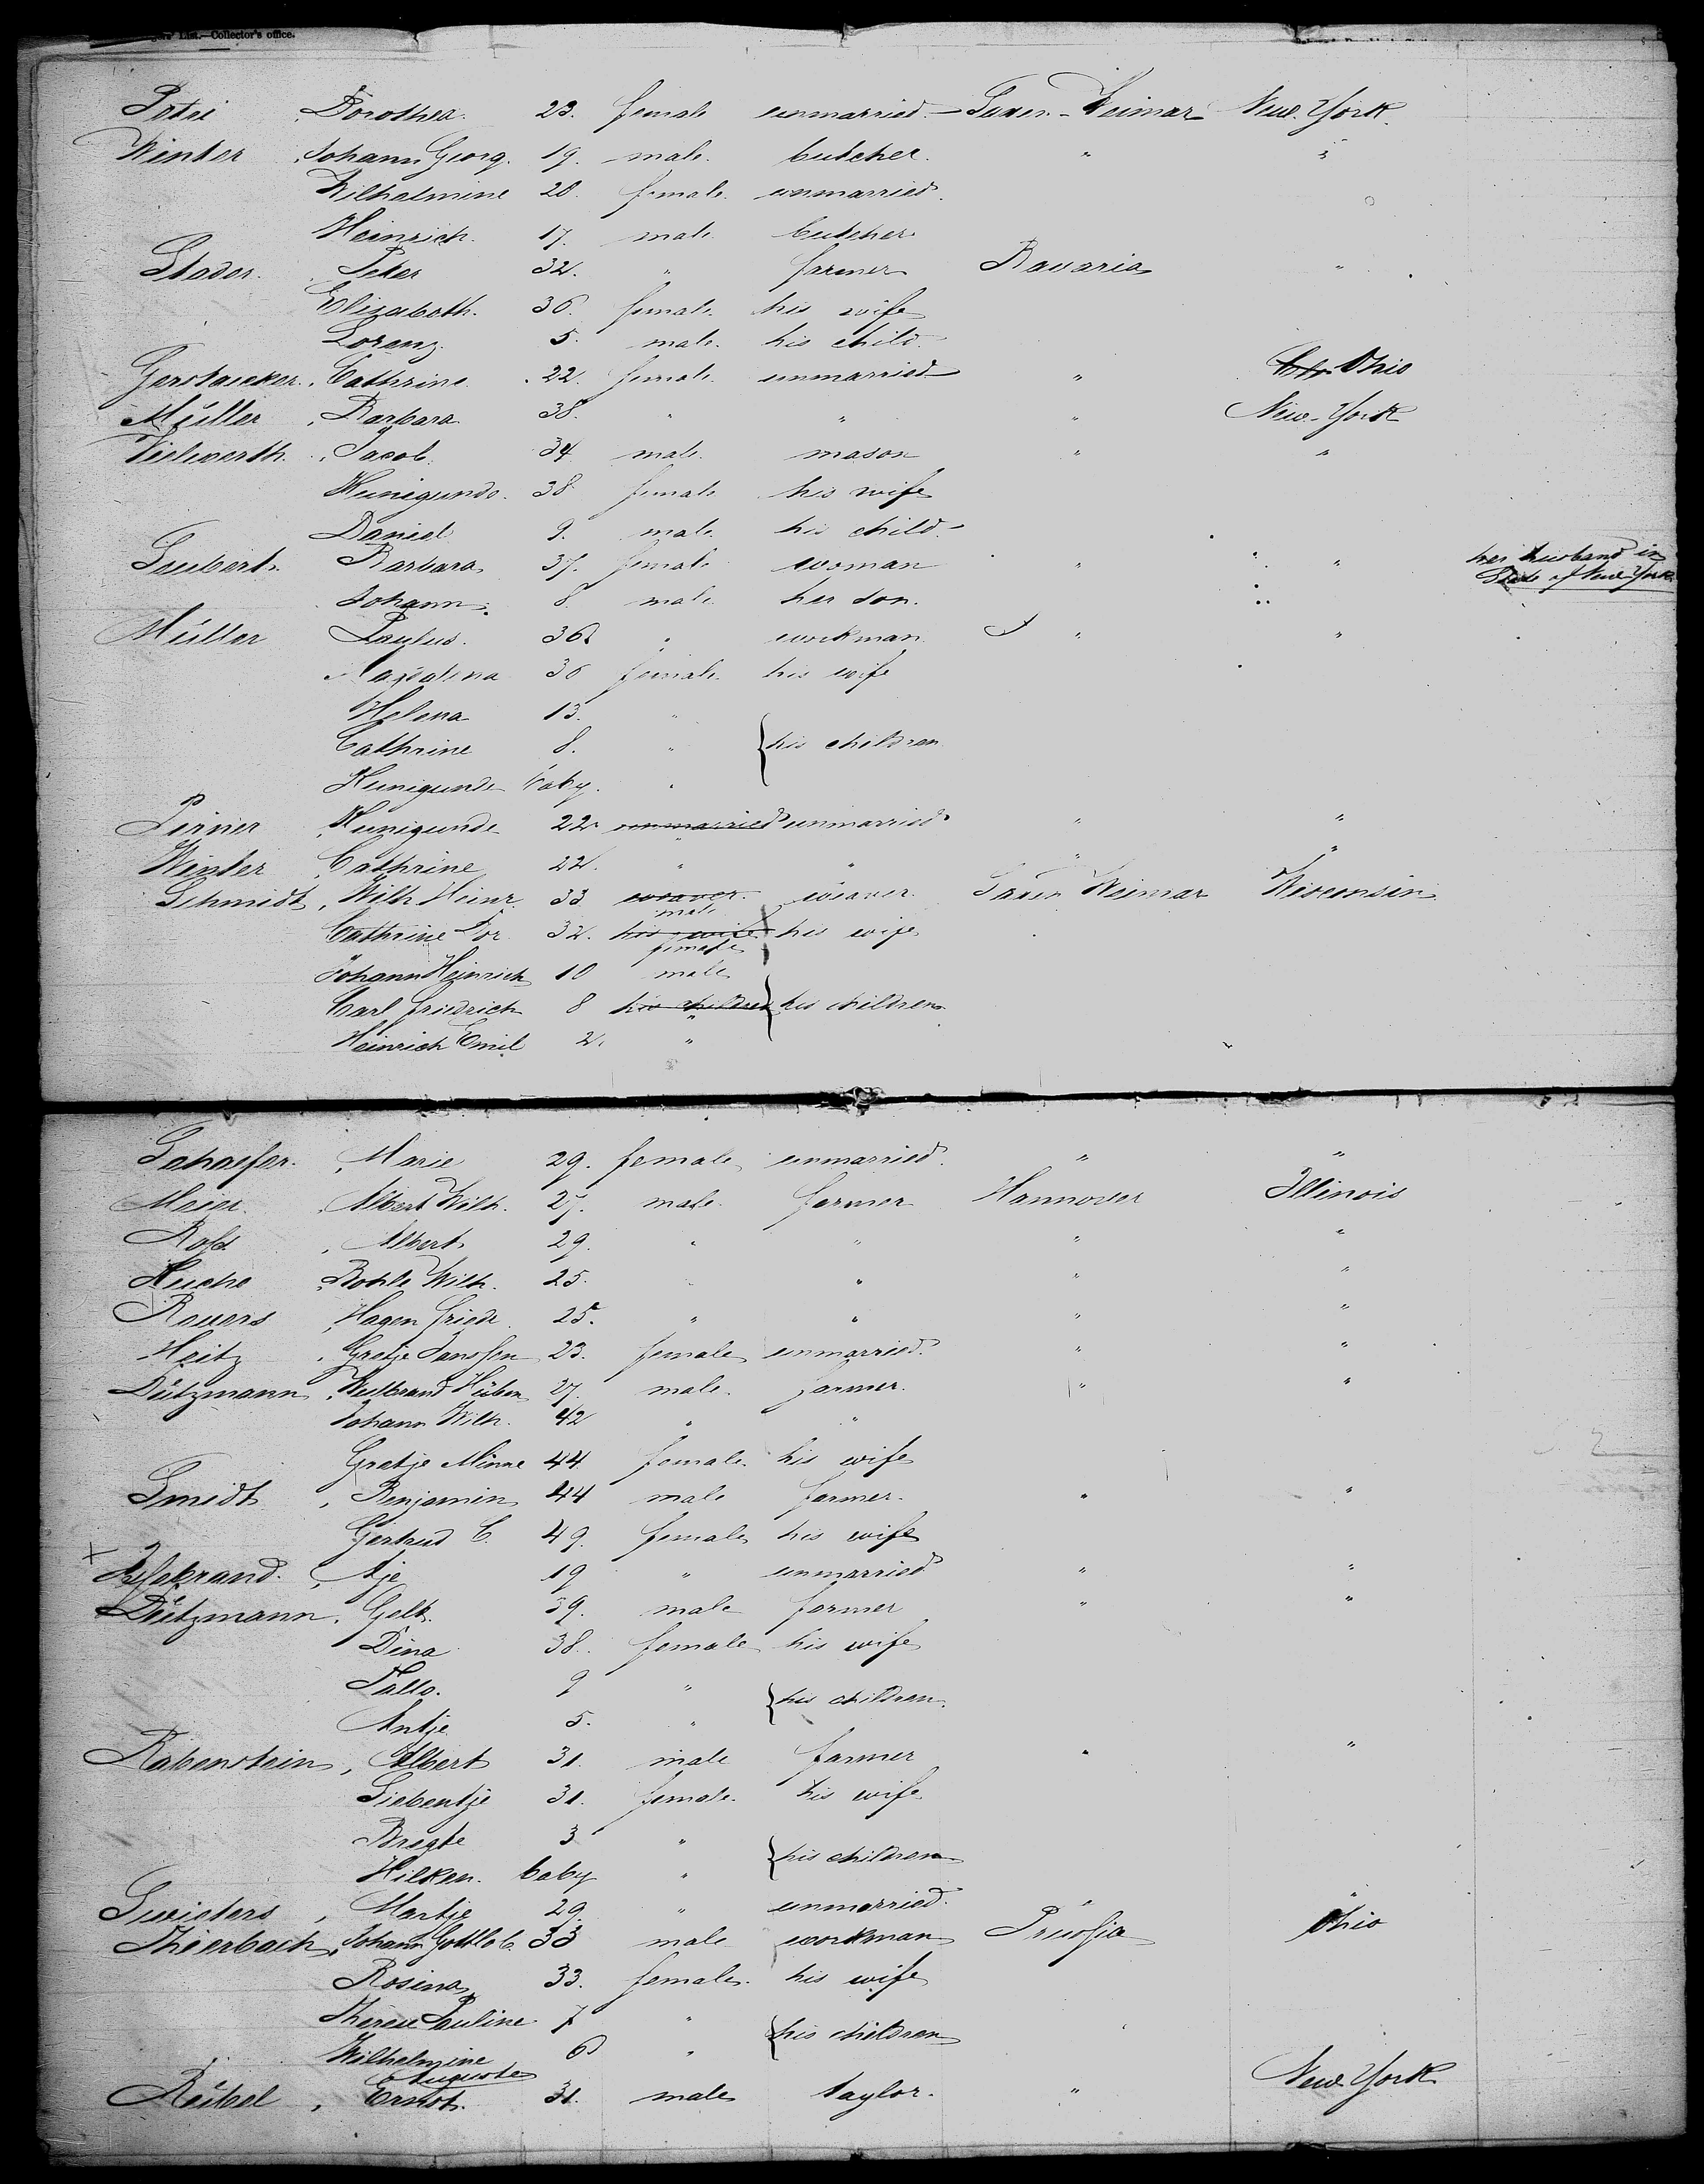 List.—Collector's office.
Petri Dorothea 23. female unmarried Saxen-Weimar New York
Winter, Johann Georg. 19. male. butcher. " "
Wilhelmine 20. female. unmarried.
Heinrich. 17. male butcher
Stador. Peter 32. " farmer Bavaria "
Elizaboth. 36. female his wife
Lorenz. 5. male. his child.
Gerstaecker, Cathrine 22. female unmarried " Ohio
Müller, Barbara 38. " " " New-York
Vielwerth, Jacob. 34 male. mason " "
Kunigunde. 38 female his wife
Daniel 9. male. his child.
Seubert. Barbara 37. female woman " " her husband in State of New York
Johann. 8. male her son.
Müller Paulus. 36. " workman " "
Magdalena 36 female. his wife
Helena 13. "
Cathrine 8. " } his children
Kunigunde baby. "
Pirner, Kunigunde 22. unmarried unmarried " "
" 
Winter, Cathrine 22. " " " "
Schmidt, Wilh Heinr. 33 weaver. weaver. Saxen Weimar Wisconsin
male
Cathrine Dor. 32. his wife his wife
female
Johann Heinrich 10 male
Carl Friedrich 8 his children } his children
"
Heinrich Emil 2. "
Schaefer, Marie 29. female unmarried. " "
Meier, Albert Wilh. 27. male. farmer Hannover Illinois
Albert 29. " " " "
Bohle Wilh. 25. " " " "
Hagen Friedr. 25. " " " "
Heitz, Gretje Janssen 23. female unmarried. " "
Dützmann, Hüben 27. male. farmer. " "
Johann Wilh. 42 " "
Gretje Minne 44 female. his wife
Smidt, Benjamin 44 male farmer. " "
Gertrud C. 49. female his wife
x brand, Atje 19 " unmarried " "
Dützmann, Gelt. 39. male farmer " "
Dina 38. female his wife
9 " } his children.
Antje 5. "
Rabenstein, Albert 31. male farmer " "
Siebentje 31. female. his wife
Bregte 3 " } his children
Hilken. baby "
Swieters, Martje 29. " unmarried. " "
Thierbach, Johann Gottlob. 33 male workman Prussia Ohio
Rosina 33. female. his wife
Therese Pauline 7 " } his children
Wilhelmine 6 "
Auguste
Reübel, Ernst. 31. male taylor. " New York